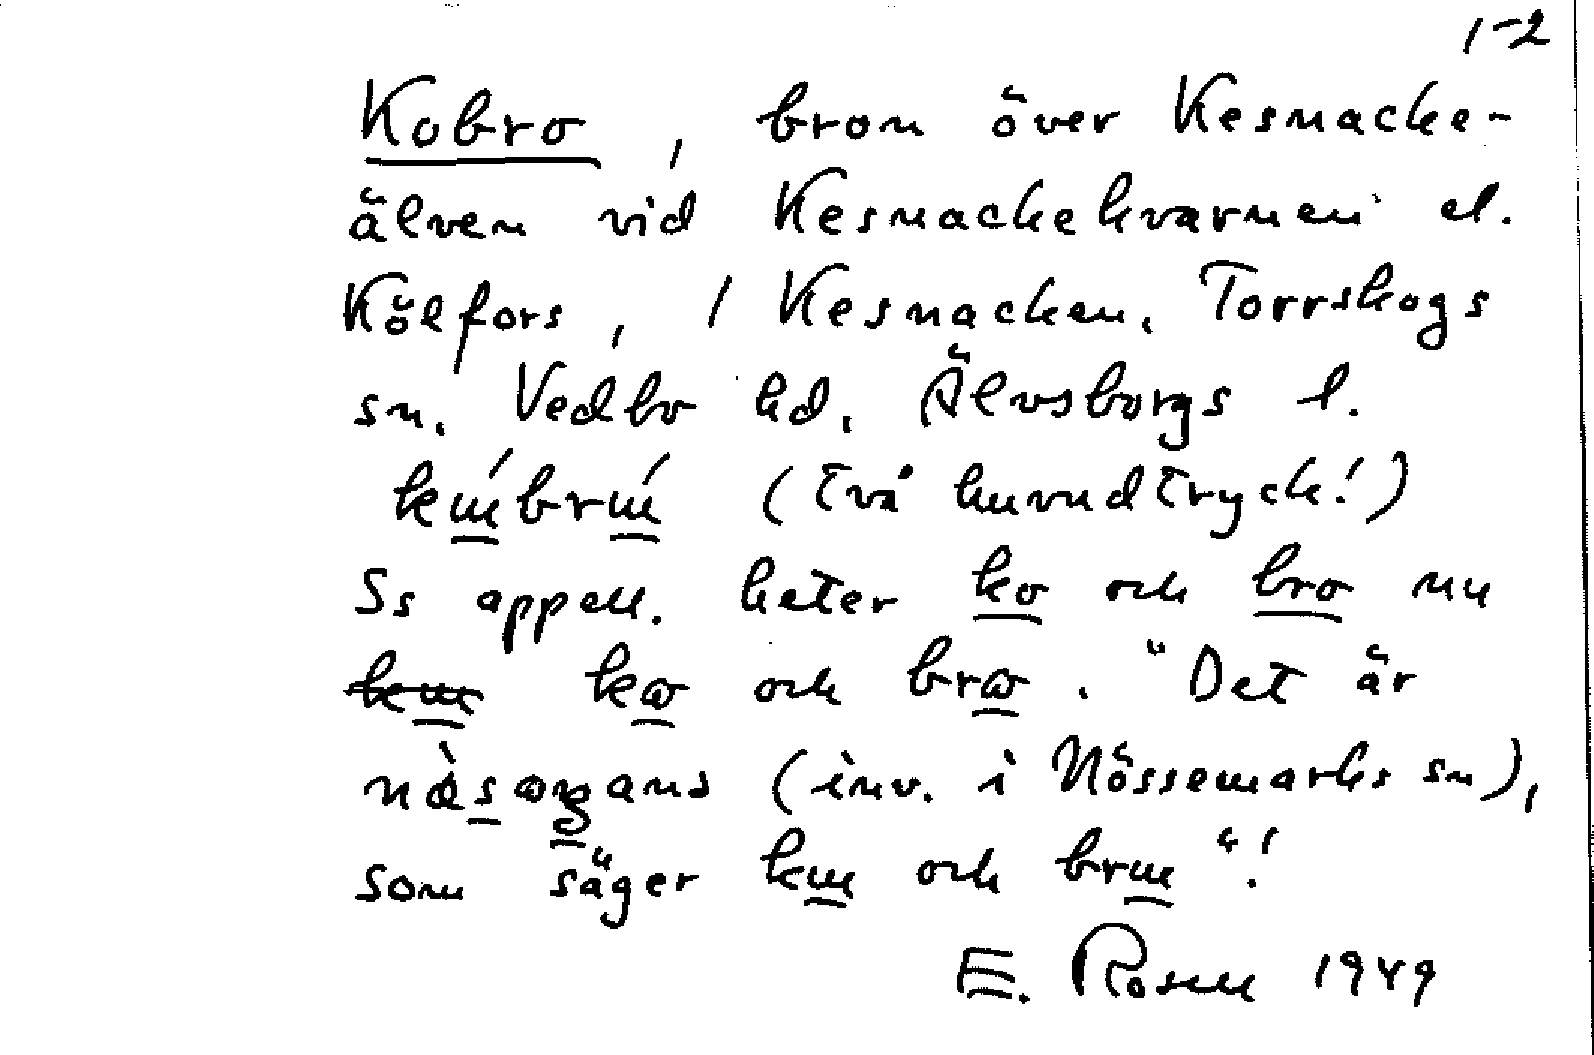 1-2
Kobro, bron över Kesnacke-
älven vid Kesnackekvarnen el.
Kölfors, 1 Kesnacken, Torrskogs
sn, Vedbo hd, Älvsborgs l.
(två huvudtryck!)
Ss appell. heter ko och bro nu
och . "Det är
(inv. i Nössemarks sn),
som säger och "!
E. Rosell 1949